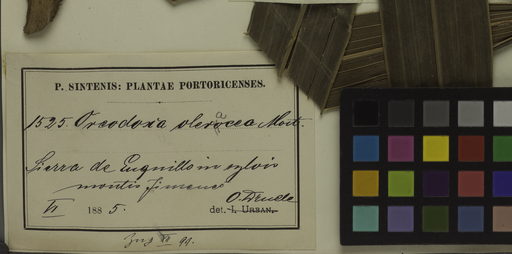 P. SINTENIS: PLANTAE PORTORICENSES.
1525. Oreodoxa oleracea Mart.
Sierra de Luquillo in sylvis
montis Jimenes
O. Drude
VI 1885. det. I. URBAN.
XI 94.